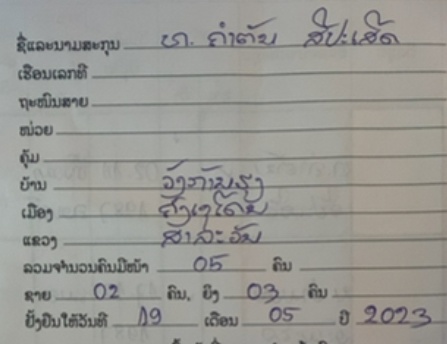 ຊື່ແລະນາມສະກຸນ ທ. ຄຳຕັນ ສີປະເສີດ
ເຮືອນເລກທີ
ຖະໜົນສາຍ
ໜ່ວຍ
ຄຸ້ມ
ບ້ານ ວັງການຮຸງ
ເມືອງ ຄົງເຊໂດນ
ແຂວງ ສາລະວັນ
ລວມຈຳນວນຄົນມີໜ້າ 05 ຄົນ
ຊາຍ 02 ຄົນ, ຍິງ 03 ຄົນ
ຢັ້ງຢືນໃຫ້ວັນທີ 19 ເດືອນ 05 ປີ 2023